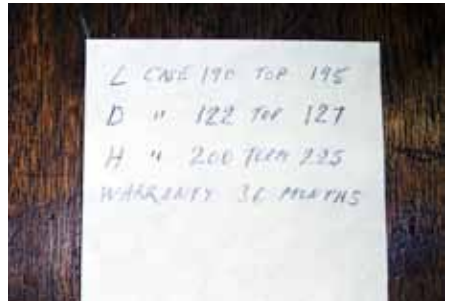 L CASE 190 TOP 195
D " 122 TOP 127
H " 200 TERM 225
WARRANTY 36 MONTHS